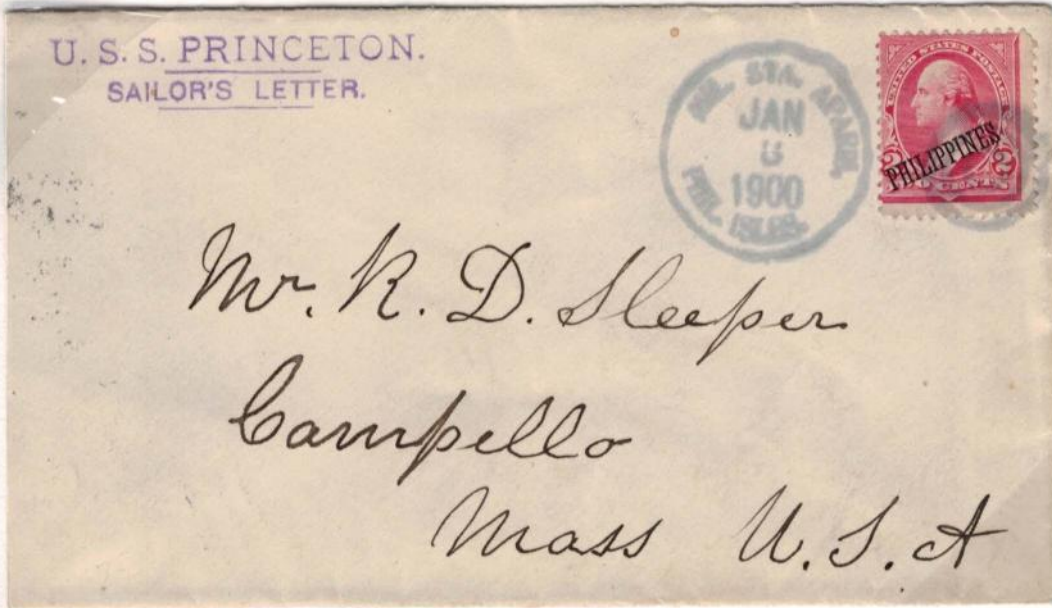 U. S. S. PRINCETON.
SAILOR'S LETTER.
MIL. STA. APARRI,
JAN
1900
PHIL. ISLDS.
UNITED STATES POSTAGE
PHILIPPINES
2 2
TWO CENTS
Mr. R. D. Sleeper
Campello
Mass U. S. A